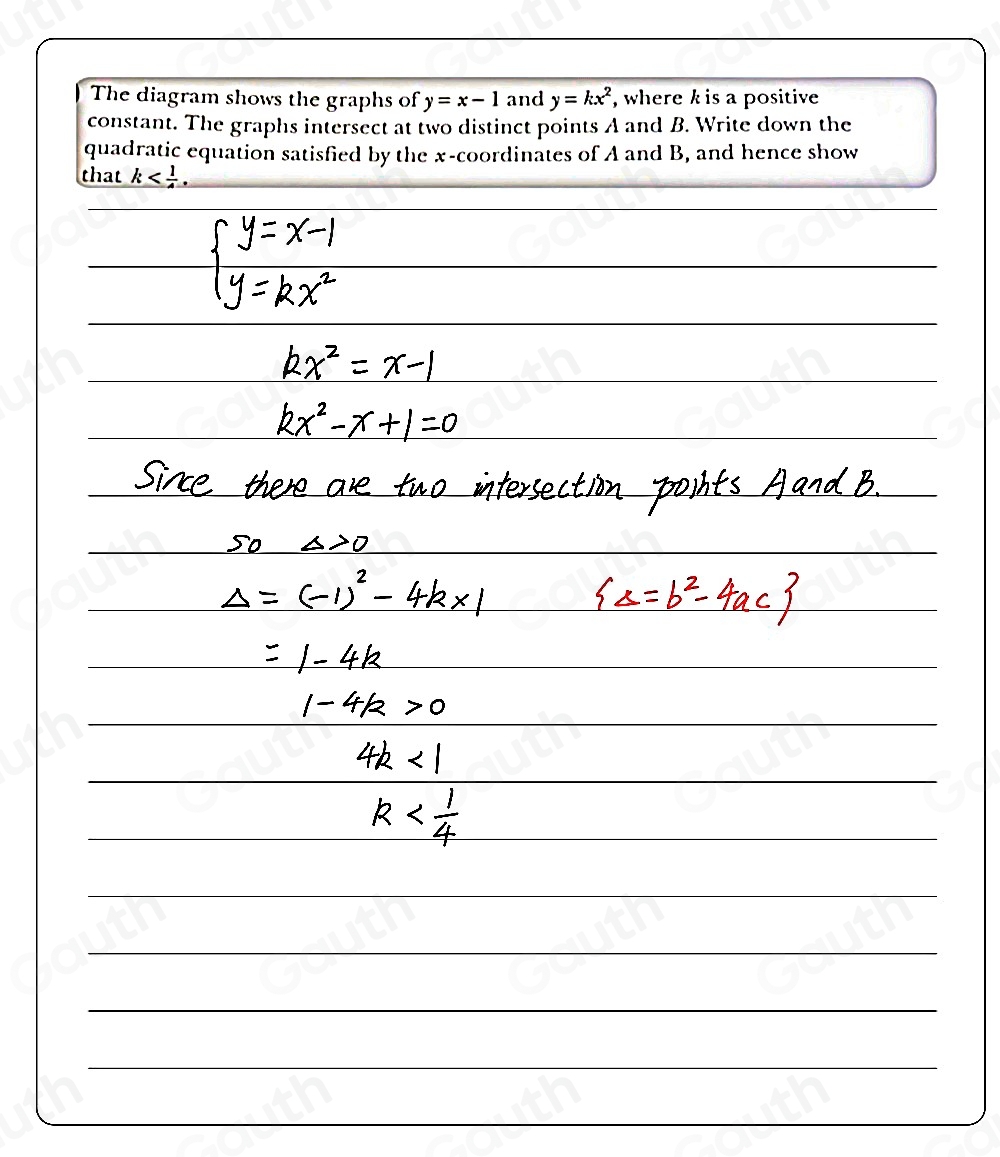 The diagram shows the graphs of y = x − 1 and y = kx², where k is a positive
constant. The graphs intersect at two distinct points A and B. Write down the
quadratic equation satisfied by the x-coordinates of A and B, and hence show
that k < 1/4.
{ y = x-1
y = kx²
kx² = x-1
kx² - x + 1 = 0
Since there are two intersection points A and B.
so Δ>0
Δ = (-1)² - 4k×1 {Δ = b² - 4ac}
= 1 - 4k
1 - 4k > 0
4k < 1
k < 1/4
Gauth